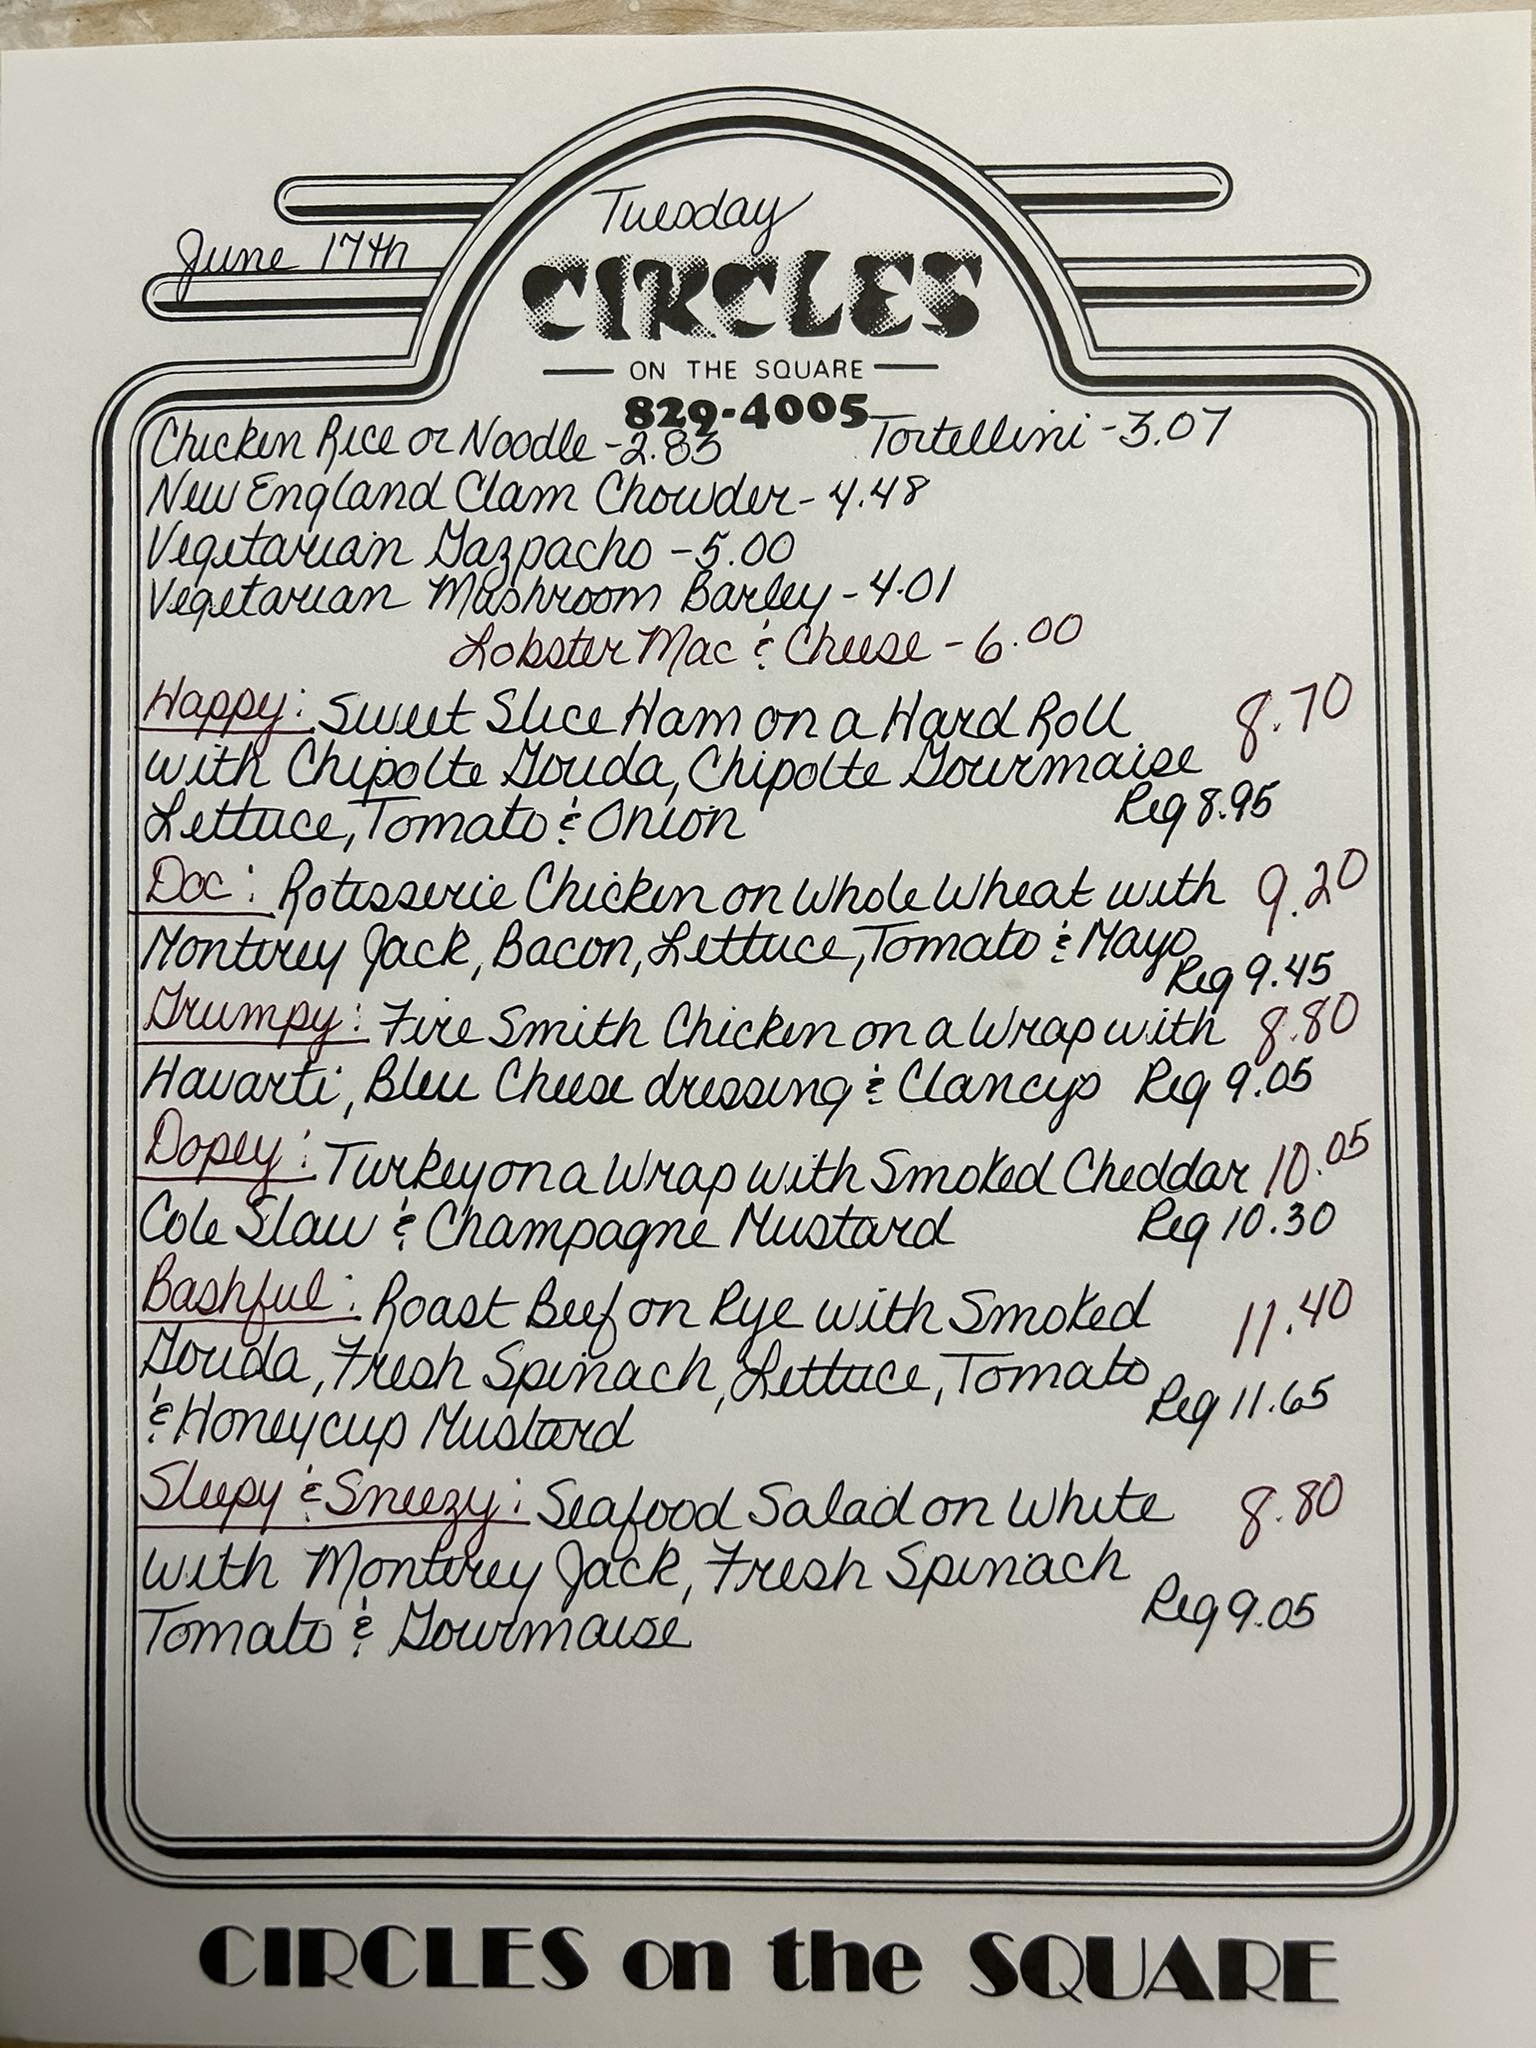 Tuesday
June 17th
CIRCLES
ON THE SQUARE
829-4005
Chicken Rice or Noodle - 2.83 Tortellini - 3.07
New England Clam Chowder - 4.48
Vegetarian Gazpacho - 5.00
Vegetarian Mushroom Barley - 4.01
Lobster Mac & Cheese - 6.00
Happy: Sweet Slice Ham on a Hard Roll 8.70
with Chipolte Gouda, Chipolte Gourmaise
Lettuce, Tomato & Onion Reg 8.95
Doc: Rotisserie Chicken on Whole Wheat with 9.20
Monterey Jack, Bacon, Lettuce, Tomato & Mayo
Reg 9.45
Grumpy: Fire Smith Chicken on a Wrap with 8.80
Havarti, Bleu Cheese dressing & Clancys Reg 9.05
Dopey: Turkey on a Wrap with Smoked Cheddar 10.05
Cole Slaw & Champagne Mustard Reg 10.30
Bashful: Roast Beef on Rye with Smoked 11.40
Gouda, Fresh Spinach, Lettuce, Tomato
& Honeycup Mustard Reg 11.65
Sleepy & Sneezy: Seafood Salad on White 8.80
with Monterey Jack, Fresh Spinach
Tomato & Gourmaise Reg 9.05
CIRCLES on the SQUARE